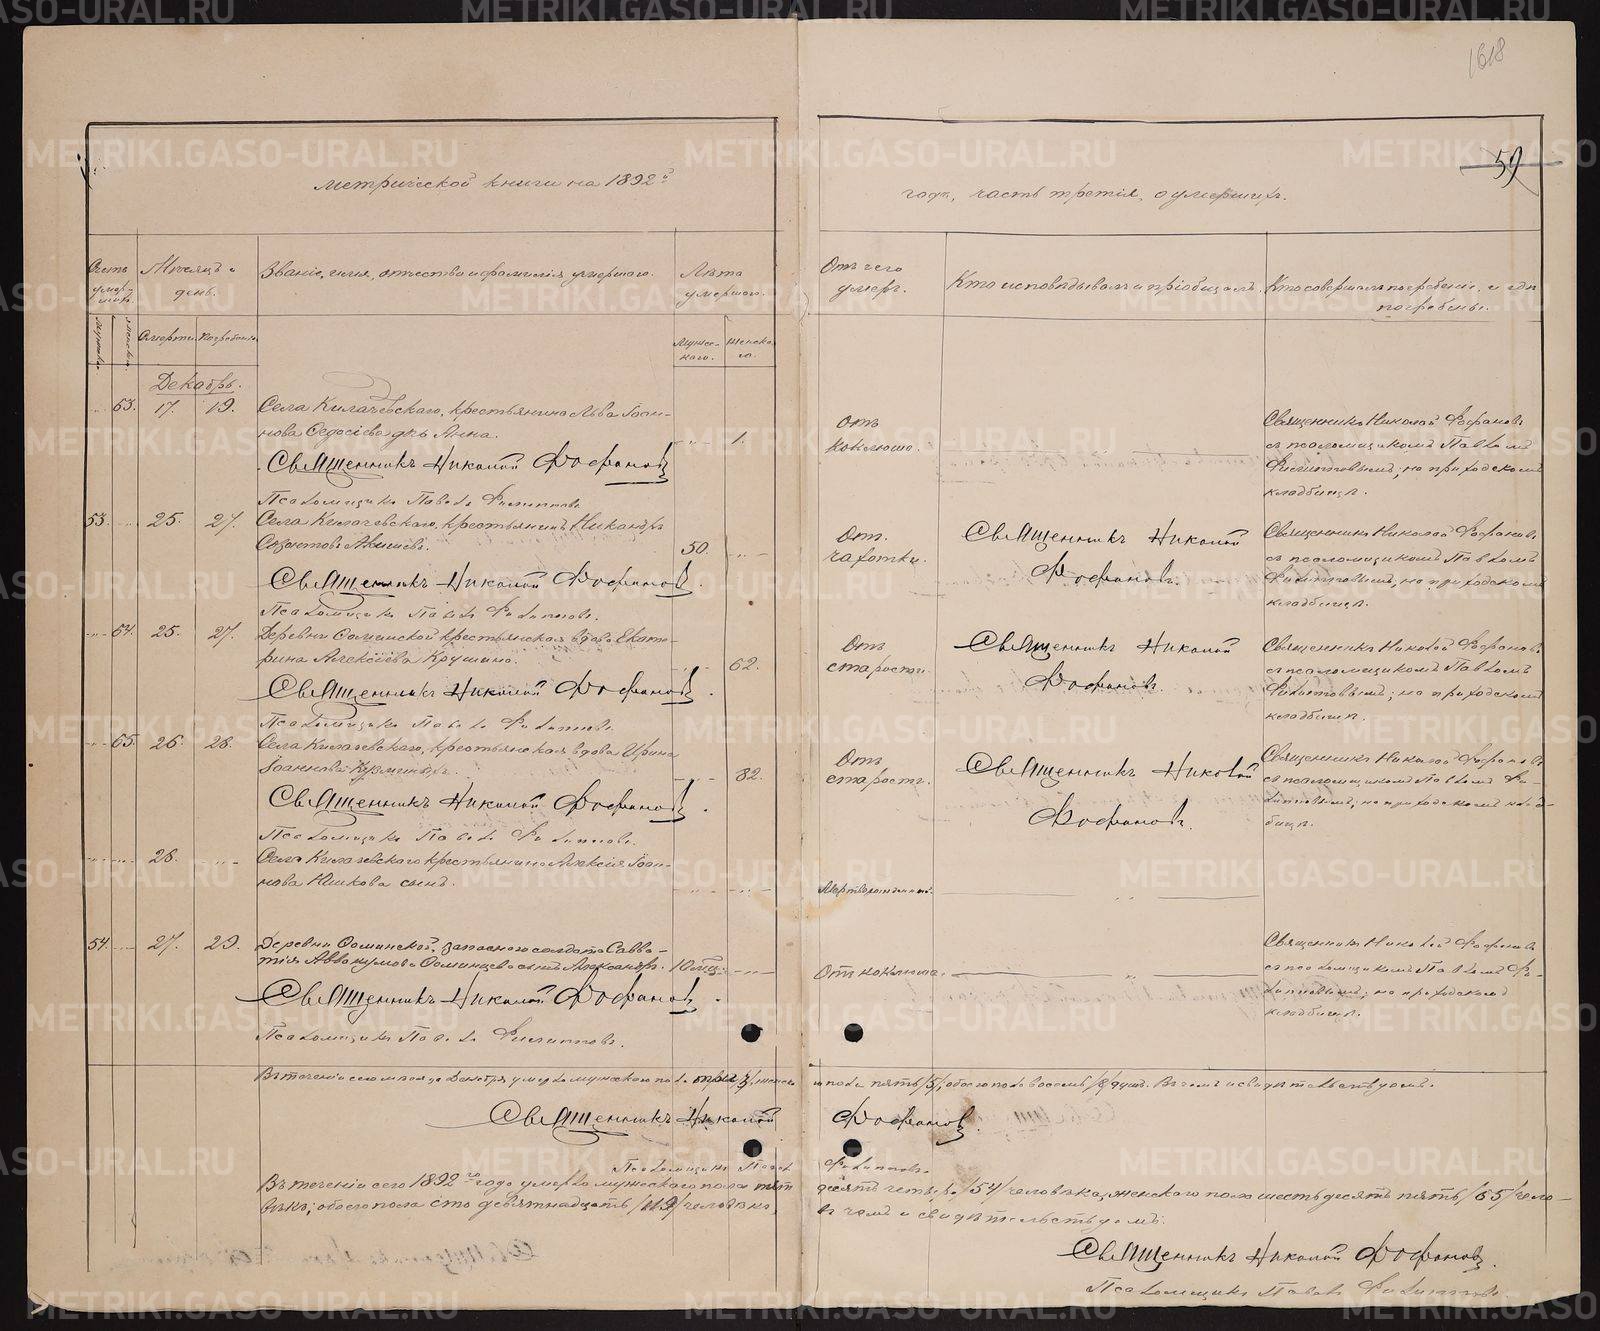 1618
59
метрической книги на 1892й
годъ, часть третія, о умершихъ.
Счетъ умер-шихъ.
Мѣсяцъ и день.
Званіе, имя, отчество и фамилія умершаго.
Лѣта умершаго.
Отъ чего умеръ.
Кто исповѣдывалъ и пріобщалъ.
Кто совершалъ погребеніе, и гдѣ погребены.
Смерти. Погребенія.
Мужес-каго. Женска-го.
Декабрь.
63. 17. 19. Села Килачевскаго, крестьянина Льва Іоан-
нова дчь Анна. 1.
Священникъ Николай Фофановъ
Псаломщикъ Павелъ Филипповъ
Отъ
коклюша.
Священникъ Николай Фофановъ
съ псаломщикомъ Павломъ
Филипповымъ; на приходскомъ
кладбищѣ.
53. 25. 27. Села Килачевскаго, крестьянинъ Никандръ
Созонтовъ 50.
Священникъ Николай Фофановъ.
Псаломщикъ Павелъ Филипповъ.
Отъ
чахотки.
Священникъ Николай
Фофановъ.
Священникъ Николай Фофановъ
съ псаломщикомъ Павломъ
Филипповымъ; на приходскомъ
кладбищѣ.
64. 25. 27. Деревни Фоминской крестьянская вдова Екате-
рина Алексіева 62.
Священникъ Николай Фофановъ.
Псаломщикъ Павелъ Филипповъ.
Отъ
старости.
Священникъ Николай
Фофановъ.
Священникъ Николай Фофановъ
съ псаломщикомъ Павломъ
Филипповымъ; на приходскомъ
кладбищѣ.
65. 26. 28. Села Килачевскаго, крестьянская вдова Ирина
Іоаннова 82.
Священникъ Николай Фофановъ.
Псаломщикъ Павелъ Филипповъ.
Отъ
старости.
Священникъ Николай
Фофановъ.
Священникъ Николай Фофановъ
съ псаломщикомъ Павломъ Фи-
липповымъ; на приходскомъ клад-
бищѣ.
28. Села Килачевскаго крестьянина Алексія Іоан-
нова сынъ.
Мертворожденный.
54. 27. 29. Деревни Фоминской, запаснаго солдата Савва-
тія Аввакумова Фоминцева сынъ Александръ. 10 мц.
Священникъ Николай Фофановъ.
Псаломщикъ Павелъ Филипповъ.
Отъ коклюша.
Священникъ Николай Фофановъ
съ псаломщикомъ Павломъ Фи-
липповымъ; на приходскомъ
кладбищѣ.
Въ теченіи сего мѣсяца Декабря умерло мужескаго пола три /3/, женска-
го пола пять /5/, обоего пола восемь /8/ душъ. Въ чемъ и свидѣтельствуемъ.
Священникъ Николай Фофановъ.
Псаломщикъ Павелъ Филипповъ.
Въ теченіи сего 1892го года умерло мужескаго пола пять
десятъ четыре /54/ человѣка, женскаго пола шестьдесятъ пять /65/ чело-
вѣкъ; обоего пола сто девятнадцать /119/ человѣкъ,
въ чемъ и свидѣтельствуемъ.
Священникъ Николай Фофановъ.
Псаломщикъ Павелъ Филипповъ.
METRIKI.GASO-URAL.RU